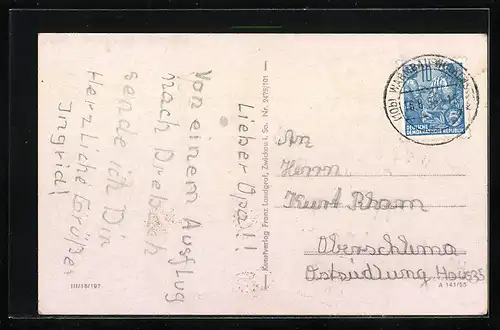 Lieber Opa!!
Von einem Ausflug
nach Drebach
sende ich Dir
Herzliche Grüße
Ingrid!
III/18/197
Kunstverlag Franz Landgraf, Zwickau i. Sa. Nr. 2475/101
10
DEUTSCHE
DEMOKRATISCHE REPUBLIK
An
Herrn
Kurt Rham
Oberschlema
Ostsiedlung Haus 35
A 141/55